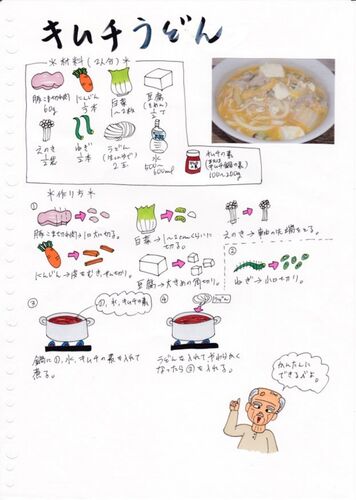 キムチうどん
＊材料(2人分)＊
豚こま切れ肉
60g
にんじん
1/3本
白菜
1〜2枚
豆腐
(もめん)
えのき
ねぎ
うどん
2玉
水
600ml
キムチの素
または
キムチ鍋の素
100〜200g
＊作り方＊
①
豚こま切れ肉→一口大に切る。
白菜→1〜2cmくらいに
切る。
えのき→軸の先端をとる。
にんじん→皮をむき、千切り。
豆腐→大きめの角切り。
②
ねぎ→小口切り。
③
①、水、キムチの素
鍋に①、水、キムチの素を入れて
煮る。
④
うどん
うどんを入れてやわらかく
なったら②を入れる。
かんたんに
できるズよ。